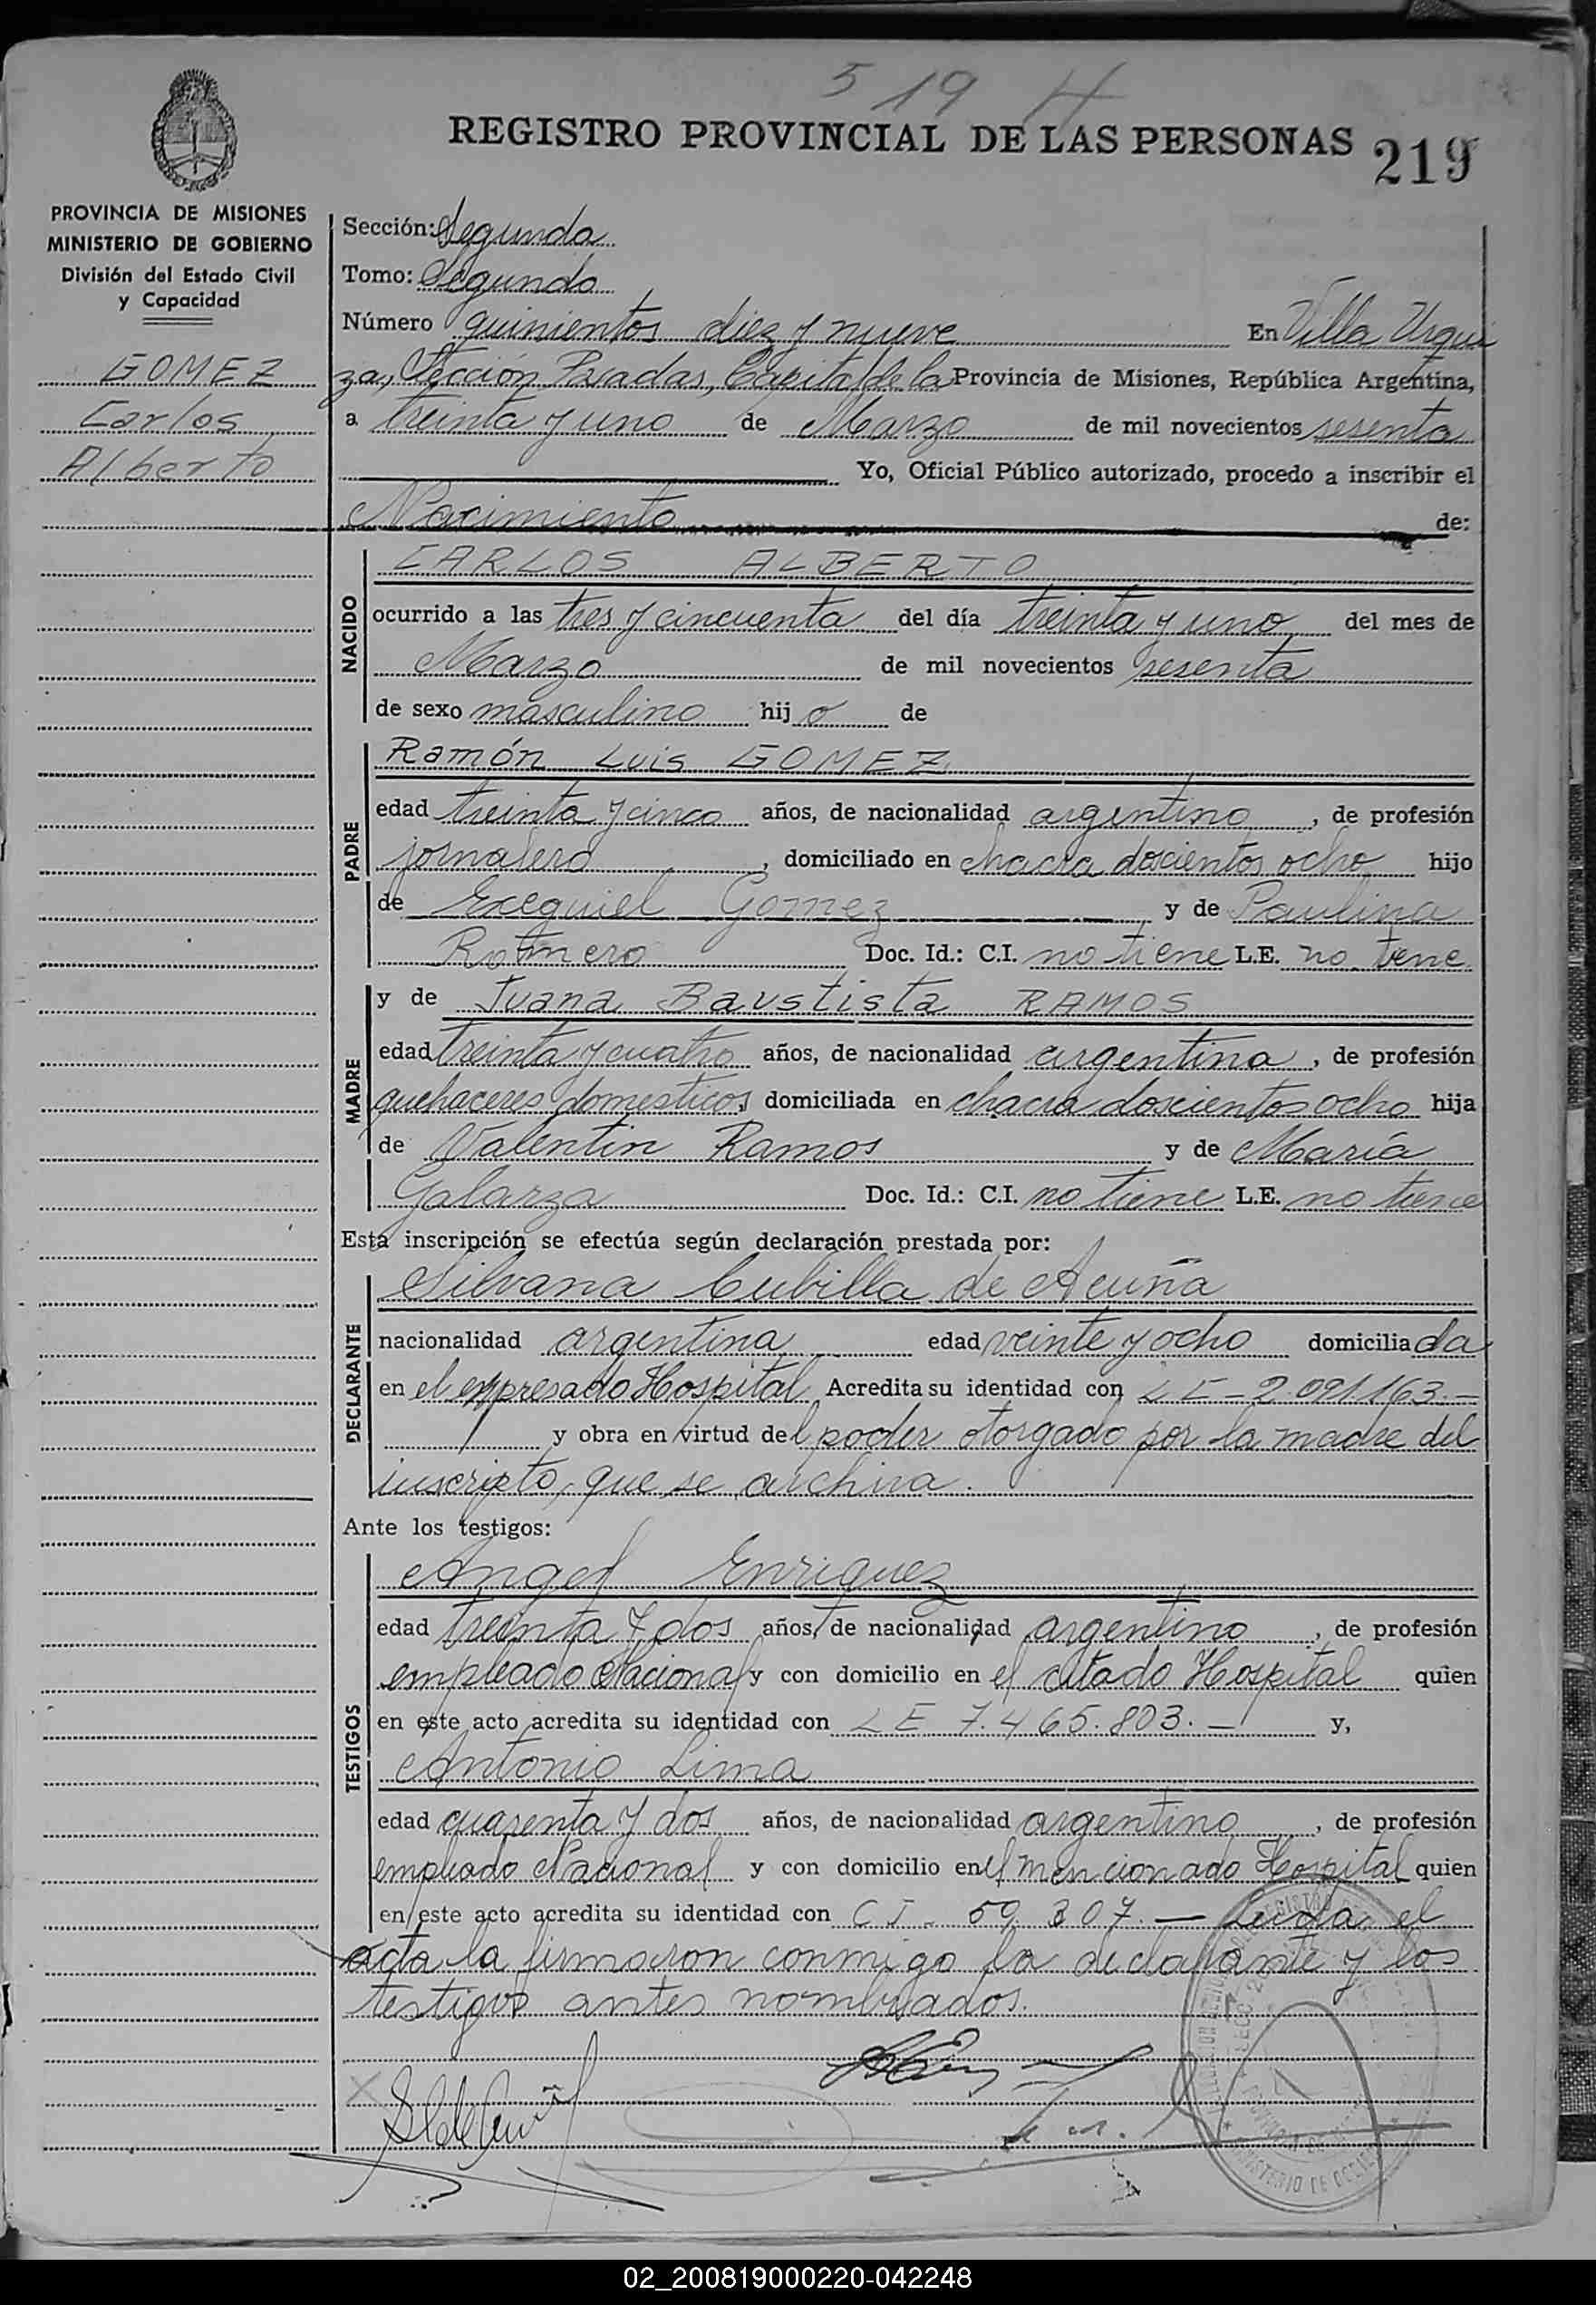 5 19 H
REGISTRO PROVINCIAL DE LAS PERSONAS 219
PROVINCIA DE MISIONES
MINISTERIO DE GOBIERNO
División del Estado Civil
y Capacidad
GOMEZ
Carlos
Alberto
Sección: Segunda
Tomo: Segundo
Número quinientos diez y nueve En Villa Urqui
za, Sección Posadas, Capital de la Provincia de Misiones, República Argentina,
a treinta y uno de Marzo de mil novecientos sesenta
Yo, Oficial Público autorizado, procedo a inscribir el
Nacimiento de:
NACIDO
CARLOS ALBERTO
ocurrido a las tres y cincuenta del día treinta y uno del mes de
Marzo de mil novecientos sesenta
de sexo masculino hijo de
PADRE
Ramón Luis GOMEZ
edad treinta y cinco años, de nacionalidad argentino, de profesión
jornalero, domiciliado en chacra doscientos ocho hijo
de Exequiel Gomez y de Paulina
Romero Doc. Id.: C.I. no tiene L.E. no tiene
MADRE
y de Juana Baustista RAMOS
edad treinta y cuatro años, de nacionalidad argentina, de profesión
quehaceres domesticos, domiciliada en chacra doscientos ocho hija
de Valentin Ramos y de María
Galarza Doc. Id.: C.I. no tiene L.E. no tiene
Esta inscripción se efectúa según declaración prestada por:
DECLARANTE
Silvana Cubilla de Acuña
nacionalidad argentina edad veinte y ocho domiciliada
en el expresado Hospital Acredita su identidad con LE - 2.091.163.-
y obra en virtud del poder otorgado por la madre del
inscripto, que se archiva.
Ante los testigos:
TESTIGOS
Angel Enriquez
edad treinta y dos años, de nacionalidad argentino, de profesión
empleado Nacional y con domicilio en el citado Hospital quien
en este acto acredita su identidad con LE 7.465.803.- y,
Antonio Lima
edad cuarenta y dos años, de nacionalidad argentino, de profesión
empleado Nacional y con domicilio en el mencionado Hospital quien
en este acto acredita su identidad con CI. 59.307.- Leida el
acta la firmaron conmigo la declarante y los
testigos antes nombrados.
02_200819000220-042248